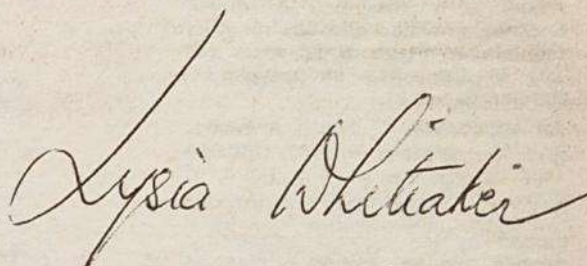 Lysia Whitaker